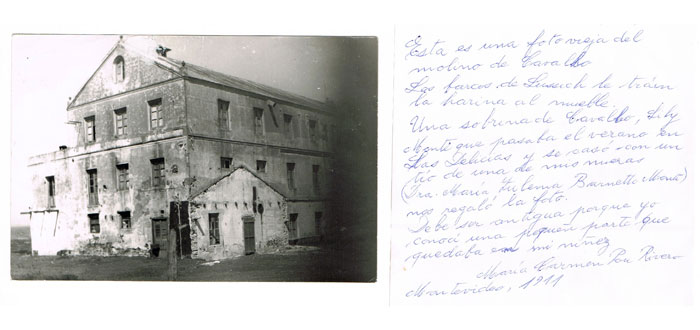 Esta es una foto vieja del
molino de Cavalho
Los barcos de Lussich le traían
la harina al muelle.
Una sobrina de Cavalho, Liby
Monté que pasaba el verano en
Las Delicias y se casó con un
tío de una de mis nueras
(Sra. María Zulema Burnett Monté)
nos regaló la foto.
Debe ser antigua porque yo
conocí una pequeña parte que
quedaba en mi niñez
María Carmen Rivero
Montevideo, 1911